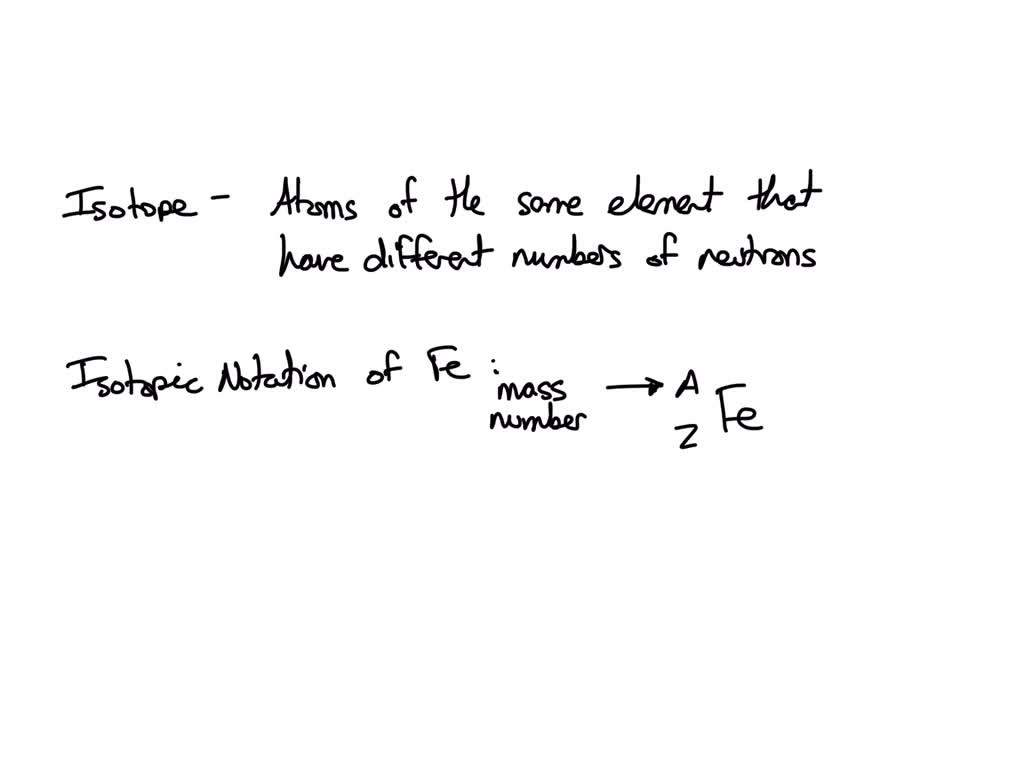 Isotope - Atoms of the same element that
have different numbers of neutrons
Isotopic Notation of Fe :
mass number → A
Z Fe